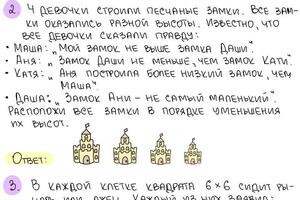 2. 4 ДЕВОЧКИ СТРОИЛИ ПЕСЧАНЫЕ ЗАМКИ. ВСЕ ЗАМ-
КИ ОКАЗАЛИСЬ РАЗНОЙ ВЫСОТЫ. ИЗВЕСТНО, ЧТО
ВСЕ ДЕВОЧКИ СКАЗАЛИ ПРАВДУ:
• МАША: „МОЙ ЗАМОК НЕ ВЫШЕ ЗАМКА ДАШИ".
• АНЯ: „ЗАМОК ДАШИ НЕ МЕНЬШЕ, ЧЕМ ЗАМОК КАТИ".
• КАТЯ: „АНЯ ПОСТРОИЛА БОЛЕЕ НИЗКИЙ ЗАМОК, ЧЕМ
МАША"
• ДАША: „ЗАМОК АНИ - НЕ САМЫЙ МАЛЕНЬКИЙ".
РАСПОЛОЖИ ВСЕ ЗАМКИ В ПОРЯДКЕ УМЕНЬШЕНИЯ
ИХ ВЫСОТ.
ОТВЕТ:
3. В КАЖДОЙ КЛЕТКЕ КВАДРАТА 6×6 СИДИТ РЫ-